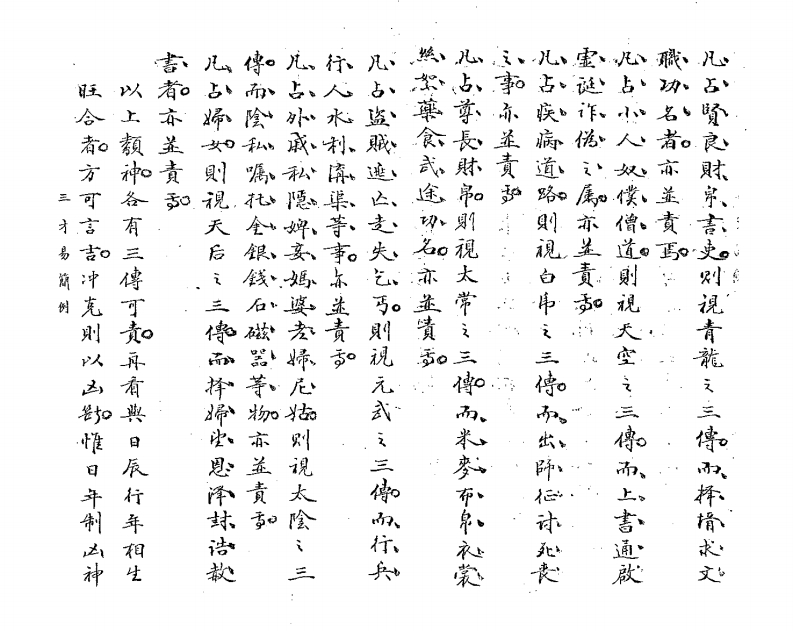 凡占賢良財帛書吏則視青龍之三傳而擇壻求文
職功名者亦並責焉
凡占小人奴僕僧道則視天空之三傳而上書通啟
虛誕詐偽之属亦並責焉
凡占疾病道路則視白帍之三傳而出師征討死喪
之事亦並責焉
凡占尊長財帛則視太常之三傳而米麥布帛衣裳
絲絮藥食武途功名亦並責焉
凡占盜賊逃亡走失乞丐則視元武之三傳而行兵
行人水利溝渠等事亦並責焉
凡占外戚私隱婢妾媽婆老婦尼姑則視太陰之三
傳而陰私囑托金銀錢石磁器等物亦並責焉
凡占婦女則視天后之三傳而擇婦望恩澤封誥赦
書者亦並責焉
以上類神各有三傳可責再看與日辰行年相生
旺合者方可言吉冲克則以凶斷惟日年制凶神
三才易簡例